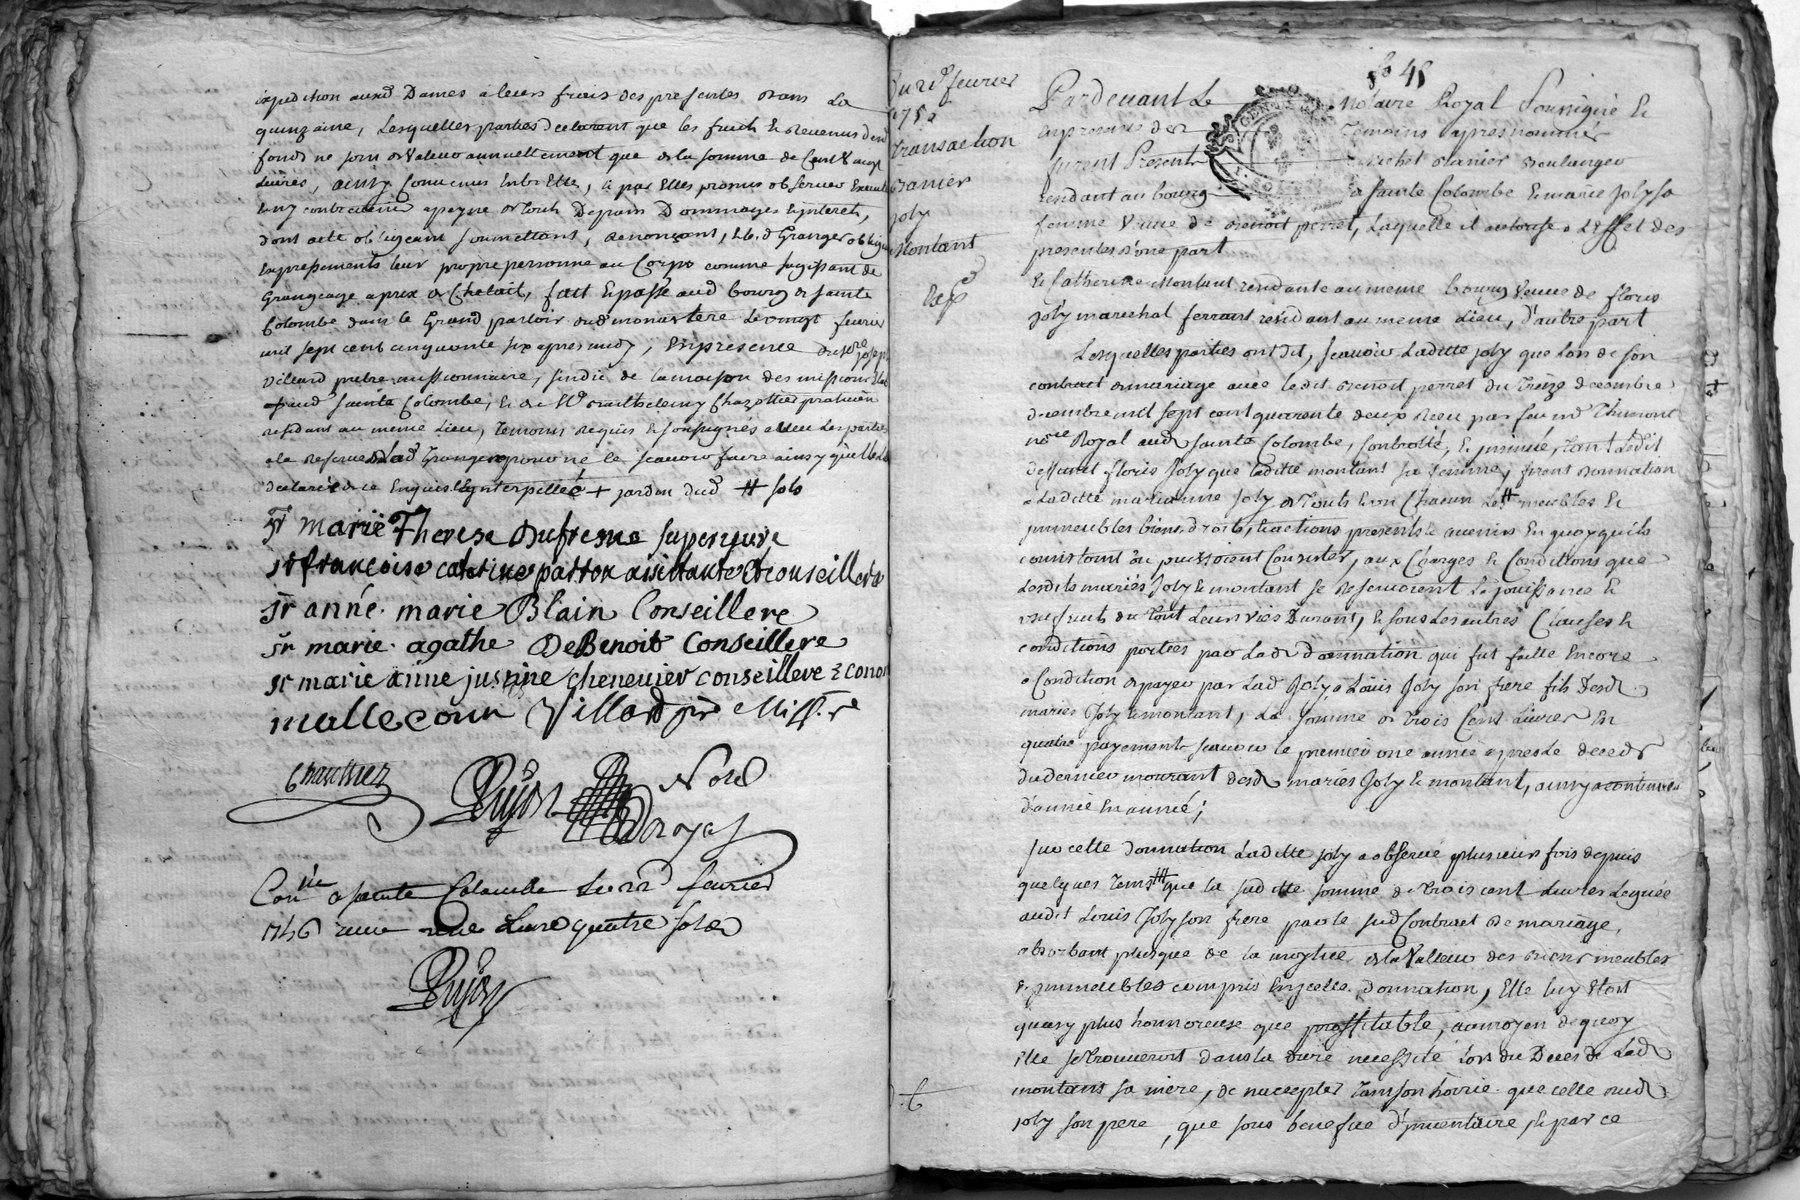 expedition ausd Dames a leurs frais des presentes dans La
quinzaine, Lesquelles parties declarant que les fruits & Revenus desd
fonds ne sont de Valleur annuellement que de la somme de Cent
Livres, ainsy Convenus Entre Elles, & par Elles promis observer
contrevenir a peyne de tous Depans Dommages & interets,
dont acte obligeant soumettant, Renonçant, & led Granger oblige
Expressement leur propre personne au Corps comme sagissant de
Grangeage a prix de Chetail, fait & passé aud bourg de Sainte
Colombe dans le Grand parloir dud monastere Le vingt fevrier
mil sept cent cinquante six apres midy, En presence de
Villard prêtre missionnaire, sindic de la maison des missions
aud Sainte Colombe, & de Sr Barthelemy Chazottier praticien
residant au meme Lieu, temoins Requis & soussignés avec Les parties
a la Reserve dud Granger pour ne le scavoir faire ainsy qu'il
declaré de ce Enquis & interpellé + jardin dud ++ sols
Sr marie Therese Dufresne superieure
Sr françoise catherine patton assistante & conseillere
Sr anné marie Blain Conseillere
Sr marie agathe DeBenoit Conseillere
Sr marie anne justine chenevier conseillere & econo
mallecour Villard ptre Missre
Chazottier
Dujon Nore
Royal
Conlle a sainte Colombe Le 22 fevrier
1756 une Livre quatre sols
Dujon
fo 45
Du 21e fevrier
175
transaction
Banier
joly
Montant
Exp
Pardevant Le notaire Royal soussigné &
en presence des temoins apres nommes
furent Presents Michel Banier Boulanger
residant au bourg de Sainte Colombe & marie joly sa
femme Veuve de Benoit perret, Laquelle il autorise a L'Effet des
presentes d'une part
& Catherine Montant residante au meme bourg Veuve de floris
joly marechal ferrant residant au meme Lieu, d'autre part
Lesquelles parties ont dit, scavoir Laditte joly que Lors de son
contract de mariage avec ledit Benoit perret du treize decembre
decembre mil sept cent quarente deux Reçu par feu me Thimont
nore Royal aud Sainte Colombe, Controllé, & insinué, tant ledit
deffunt floris Joly que laditte montant sa femme, firent donnation
a Laditte marianne Joly de touts & un Chacun Les ++ meubles &
immeubles biens, droits, & actions presents & avenirs En quoy qu'ils
consistent ou puissoient Consister, aux Charges & Conditions que
Lesdits mariés Joly & montant se Reserveroient La jouissance &
usufruits du tout Leurs vies Durant, & sous Les autres Clauses &
conditions portées par Lad Donnation qui fut faitte Encore
a Condition de payer par Lad Joly a Loüis Joly son frere fils desd
mariés Joly & montant, La somme de trois Cent Livres En
quatre payements scavoir le premier une année apres Le deceds
du dernier mourant desd mariés Joly & montant, ainsy a continuer
d'année En année;
sur cette Donnation Laditte joly a observé plusieurs fois depuis
quelques tems +++ que la susditte somme de trois cent Livres Leguée
audit Louis Joly son frere par le susd Contract de mariage,
absorbant plusque de la moytiée de la Valleur des biens meubles
& immeubles compris En ycelle donnation, Elle luy Etoit
quasy plus honnoreuse que proffitable, au moyen de quoy
Elle se trouveroit dans la dure necessité Lors du Deces de Lad
montant sa mere, de naccepter tant son hoirie que celle dud
joly son pere, que sous benefice d'inventaire, & par ce